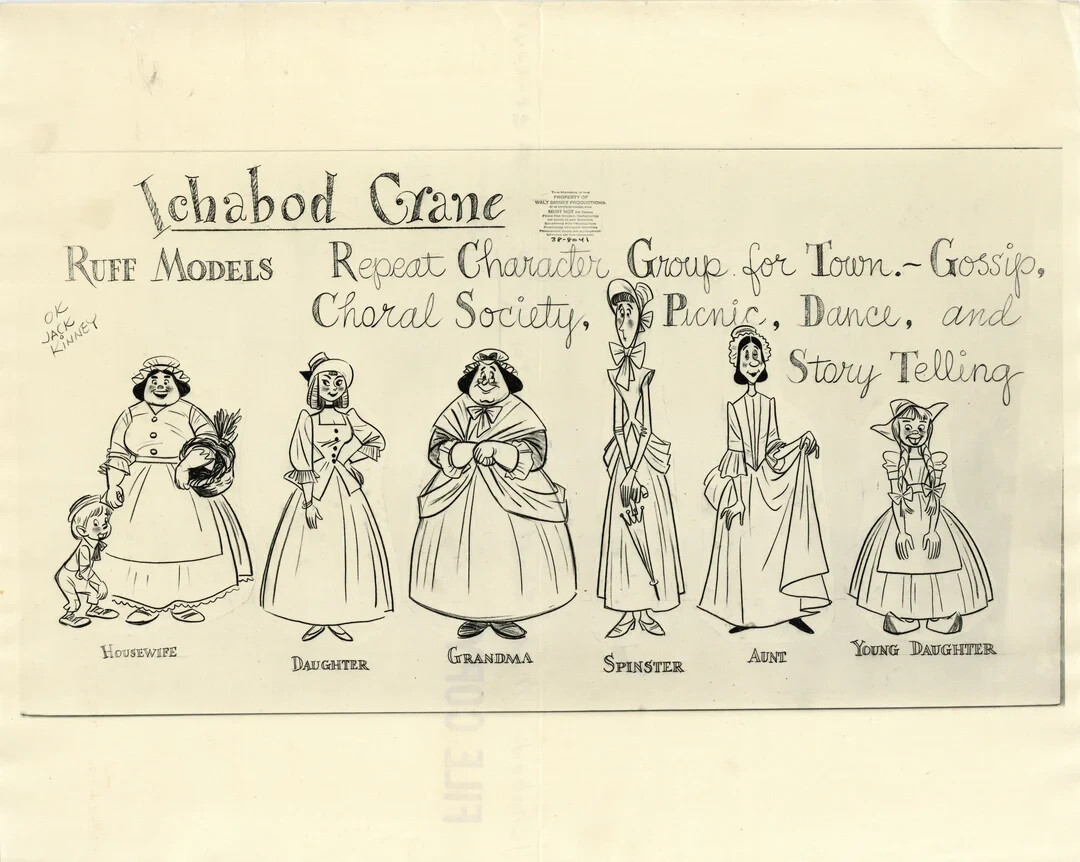 Ichabod Crane
PROPERTY OF
WALT DISNEY PRODUCTIONS
MUST NOT
38-8041
RUFF MODELS
Repeat Character Group for Town.- Gossip,
Choral Society, Picnic, Dance, and
Story Telling
OK
JACK
KINNEY
HOUSEWIFE
DAUGHTER
GRANDMA
SPINSTER
AUNT
YOUNG DAUGHTER
FILE COPY